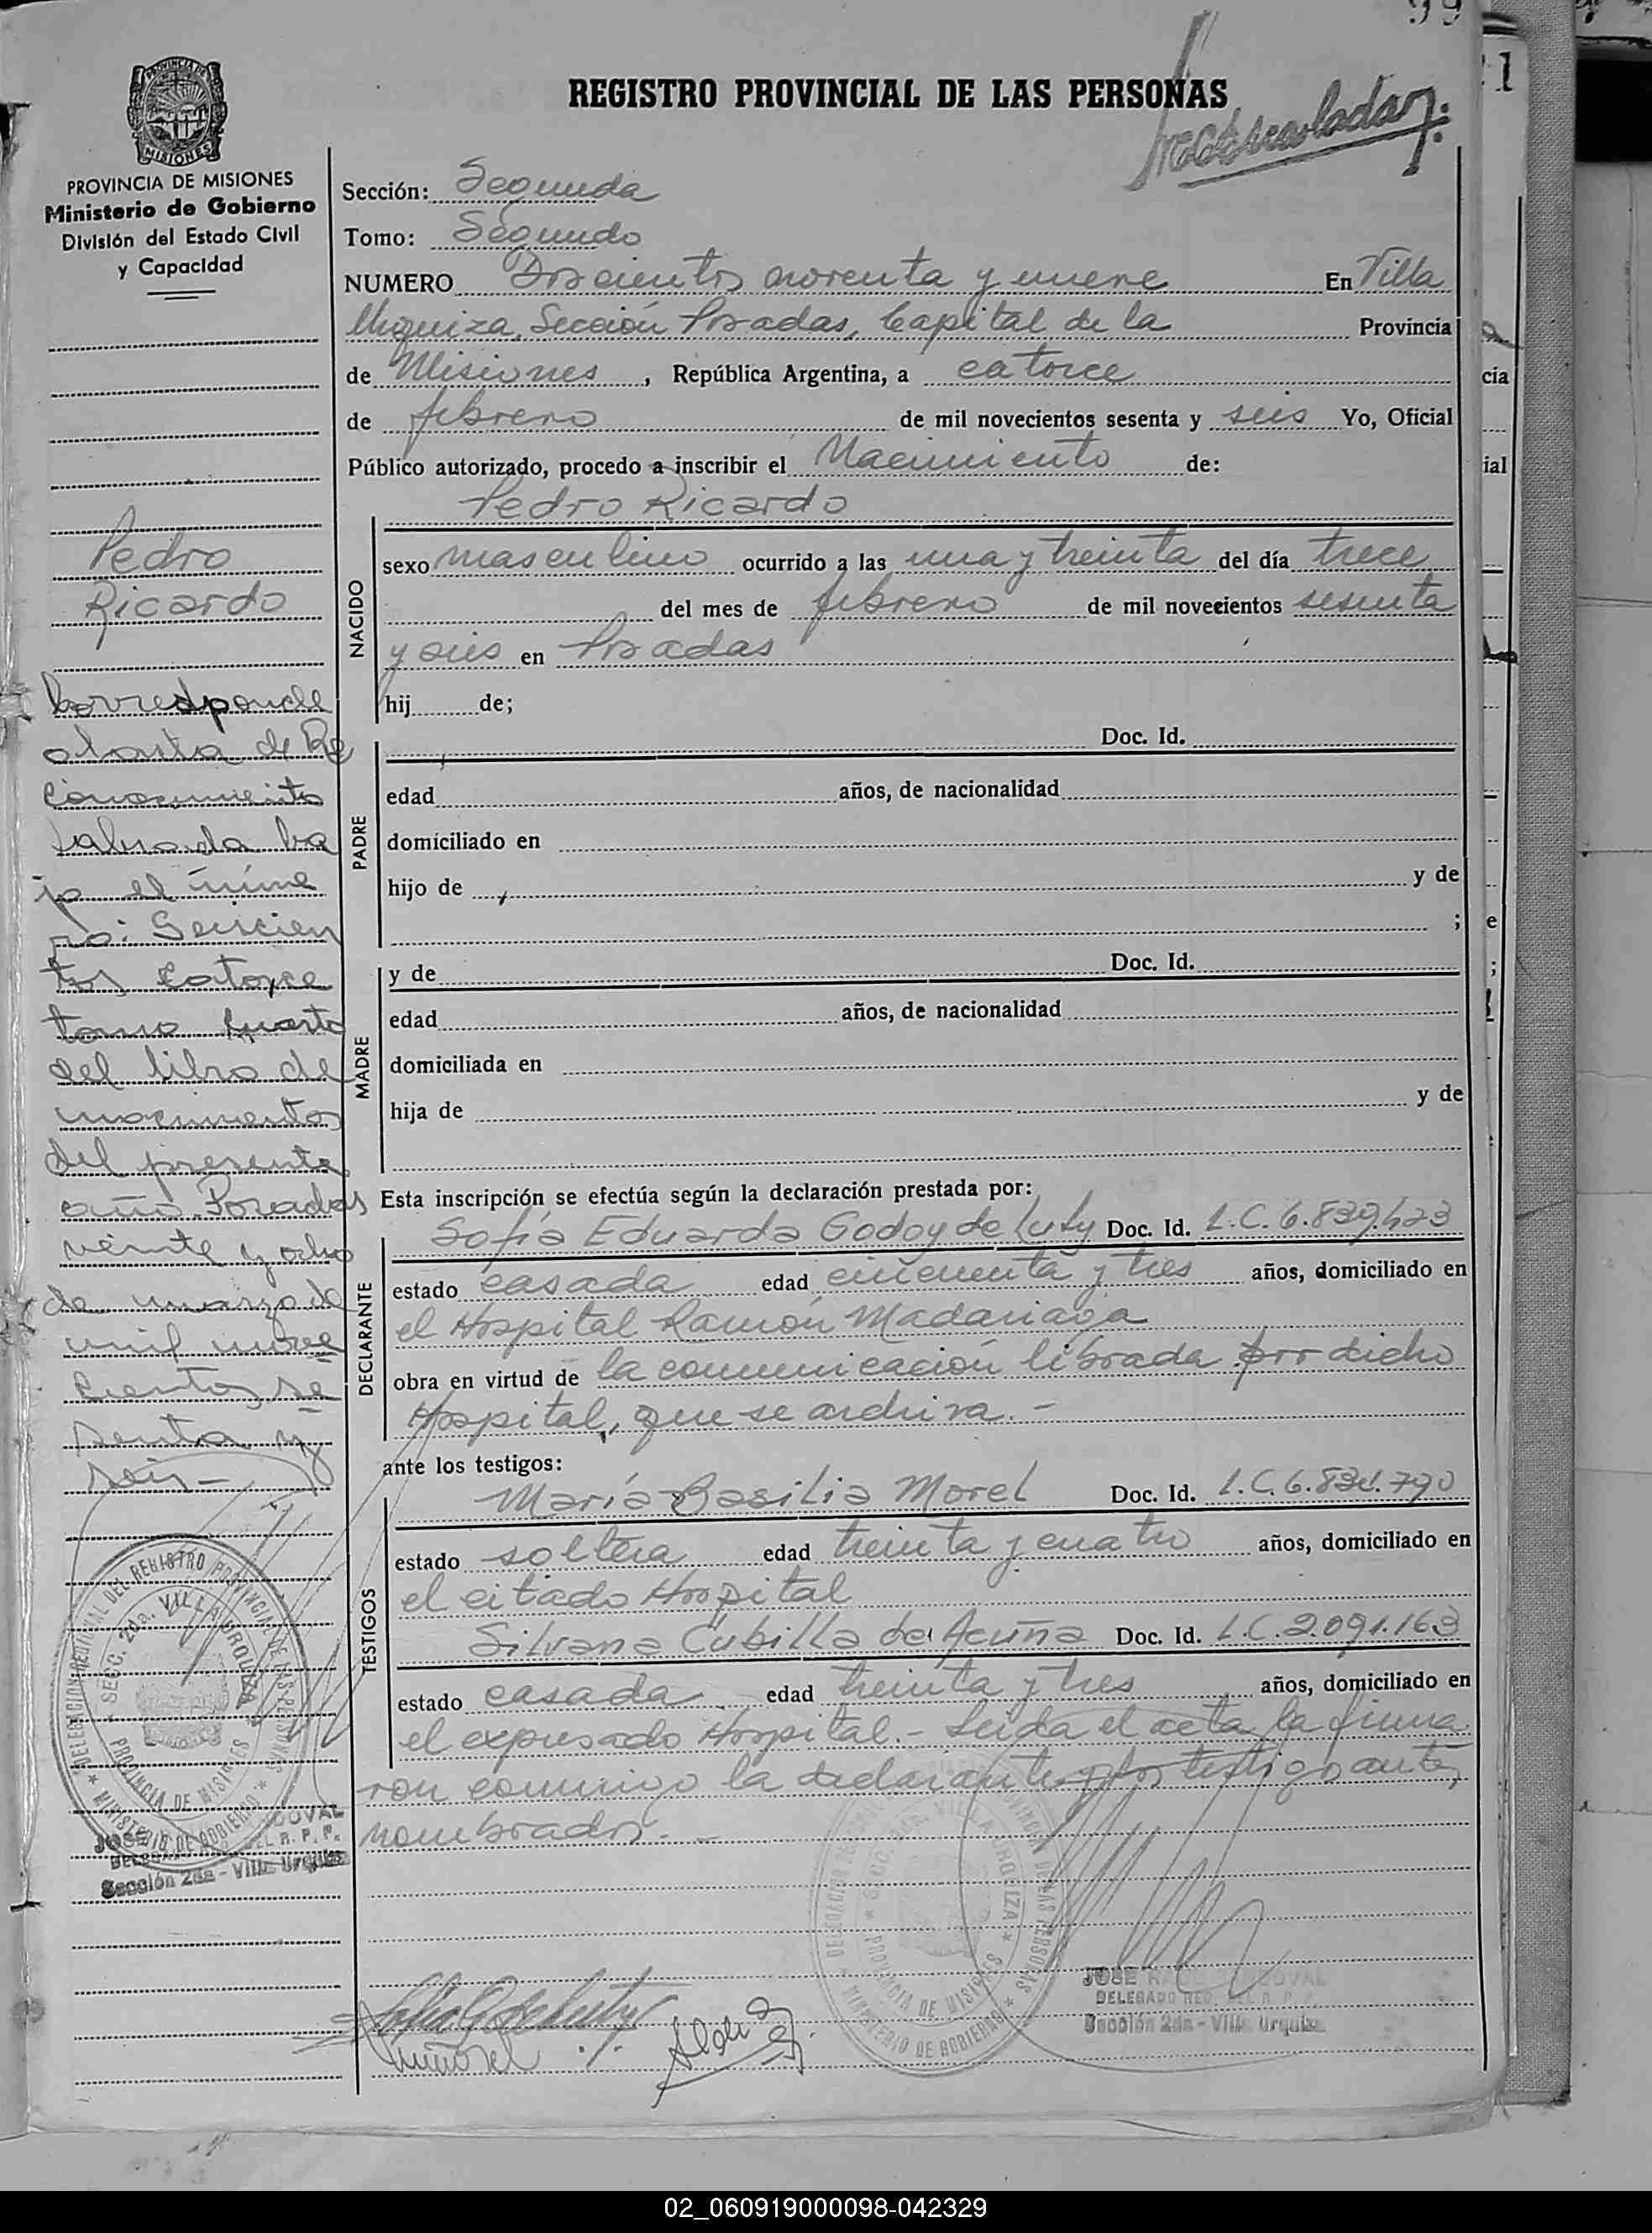 99
REGISTRO PROVINCIAL DE LAS PERSONAS
PROVINCIA DE MISIONES
Ministerio de Gobierno
División del Estado Civil
y Capacidad
Sección: Segunda
Tomo: Segundo
NUMERO Doscientos noventa y nueve En Villa
Urquiza, Sección Posadas, Capital de la Provincia
de Misiones, República Argentina, a catorce
de febrero de mil novecientos sesenta y seis Yo, Oficial
Público autorizado, procedo a inscribir el Nacimiento de:
Pedro Ricardo
NACIDO
sexo masculino ocurrido a las una y treinta del día trece
del mes de febrero de mil novecientos sesenta
y seis en Posadas
hij de;
PADRE
Doc. Id.
edad años, de nacionalidad
domiciliado en
hijo de y de
;
MADRE
y de Doc. Id.
edad años, de nacionalidad
domiciliada en
hija de y de
Esta inscripción se efectúa según la declaración prestada por:
DECLARANTE
Sofía Eduarda Godoy de Luty Doc. Id. L.C. 6.839.423
estado casada edad cincuenta y tres años, domiciliado en
el Hospital Ramón Madariaga
obra en virtud de la comunicación librada por dicho
Hospital, que se archiva.-
ante los testigos:
TESTIGOS
María Basilia Morel Doc. Id. L.C. 6.834.790
estado soltera edad treinta y cuatro años, domiciliado en
el citado Hospital
Silvana Cubilla de Acuña Doc. Id. L.C. 2.091.163
estado casada edad treinta y tres años, domiciliado en
el expresado Hospital.- Leida el acta la firma
ron conmigo la declarante y los testigos antes
nombrados.-
Pedro
Ricardo
Corresponde
al acta de Re
conocimiento
labrada ba
jo el núme
ro: Seiscien
tos catorce
tomo cuarto
del libro de
nacimientos
del presente
año. Posadas
veinte y ocho
de marzo de
mil nove
cientos se
senta y
seis-
DELEGACION REGIONAL DEL REGISTRO PROVINCIAL DE LAS PERSONAS
SECC. 2da. VILLA URQUIZA
PROVINCIA DE MISIONES
MINISTERIO DE GOBIERNO
JOSE DOVAL
DEL R. P. P.
Sección 2da - Villa Urquiza
VILLA URQUIZA
PROVINCIA DE MISIONES
MINISTERIO DE GOBIERNO
JOSE DOVAL
DELEGADO REG. DEL R. P. P.
Sección 2da - Villa Urquiza
02_060919000098-042329